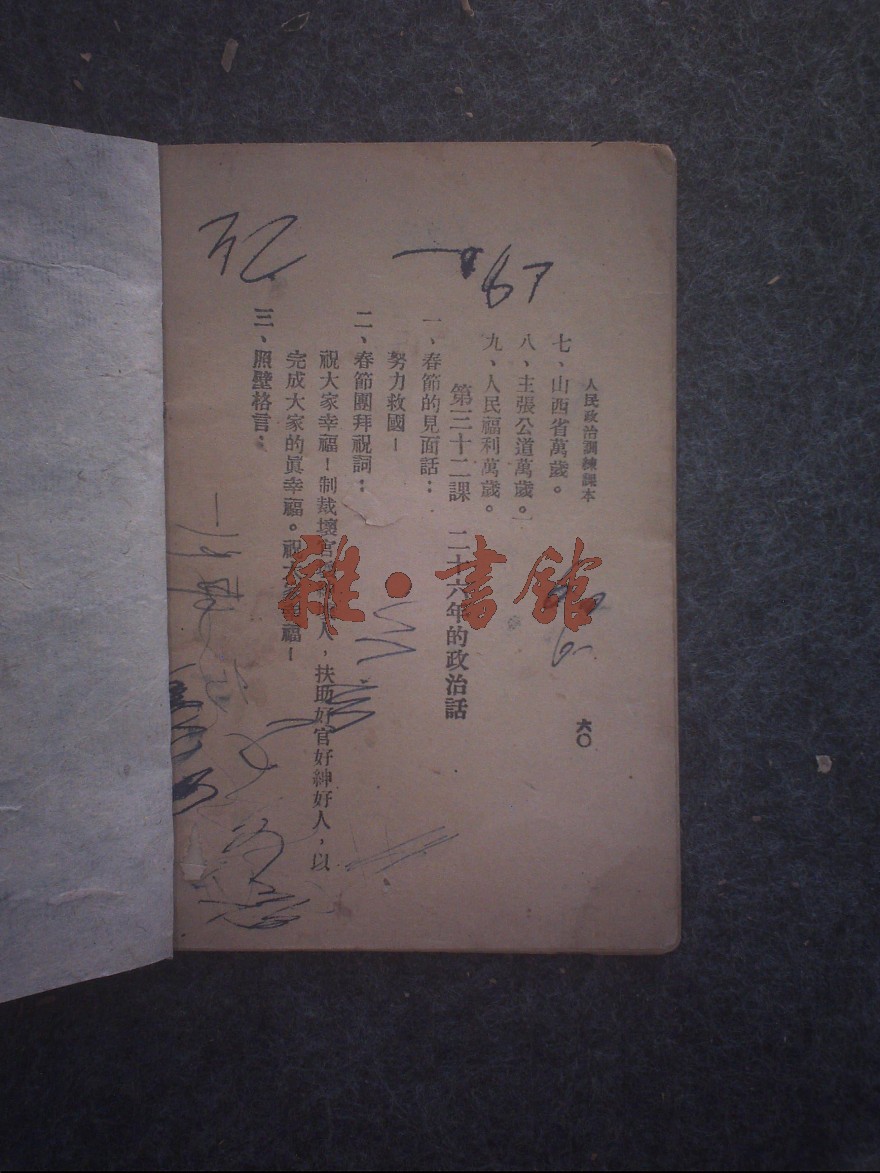 人民政治訓練課本
六〇
七、山西省萬歲。
八、主張公道萬歲。
九、人民福利萬歲。
第三十二課 二十六年的政治話
一、春節的見面話：
努力救國！
二、春節團拜祝詞：
祝大家幸福！制裁壞官人，扶助好官好紳好人，以
完成大家的眞幸福。祝大福！
三、照壁格言：
67
雜·書館